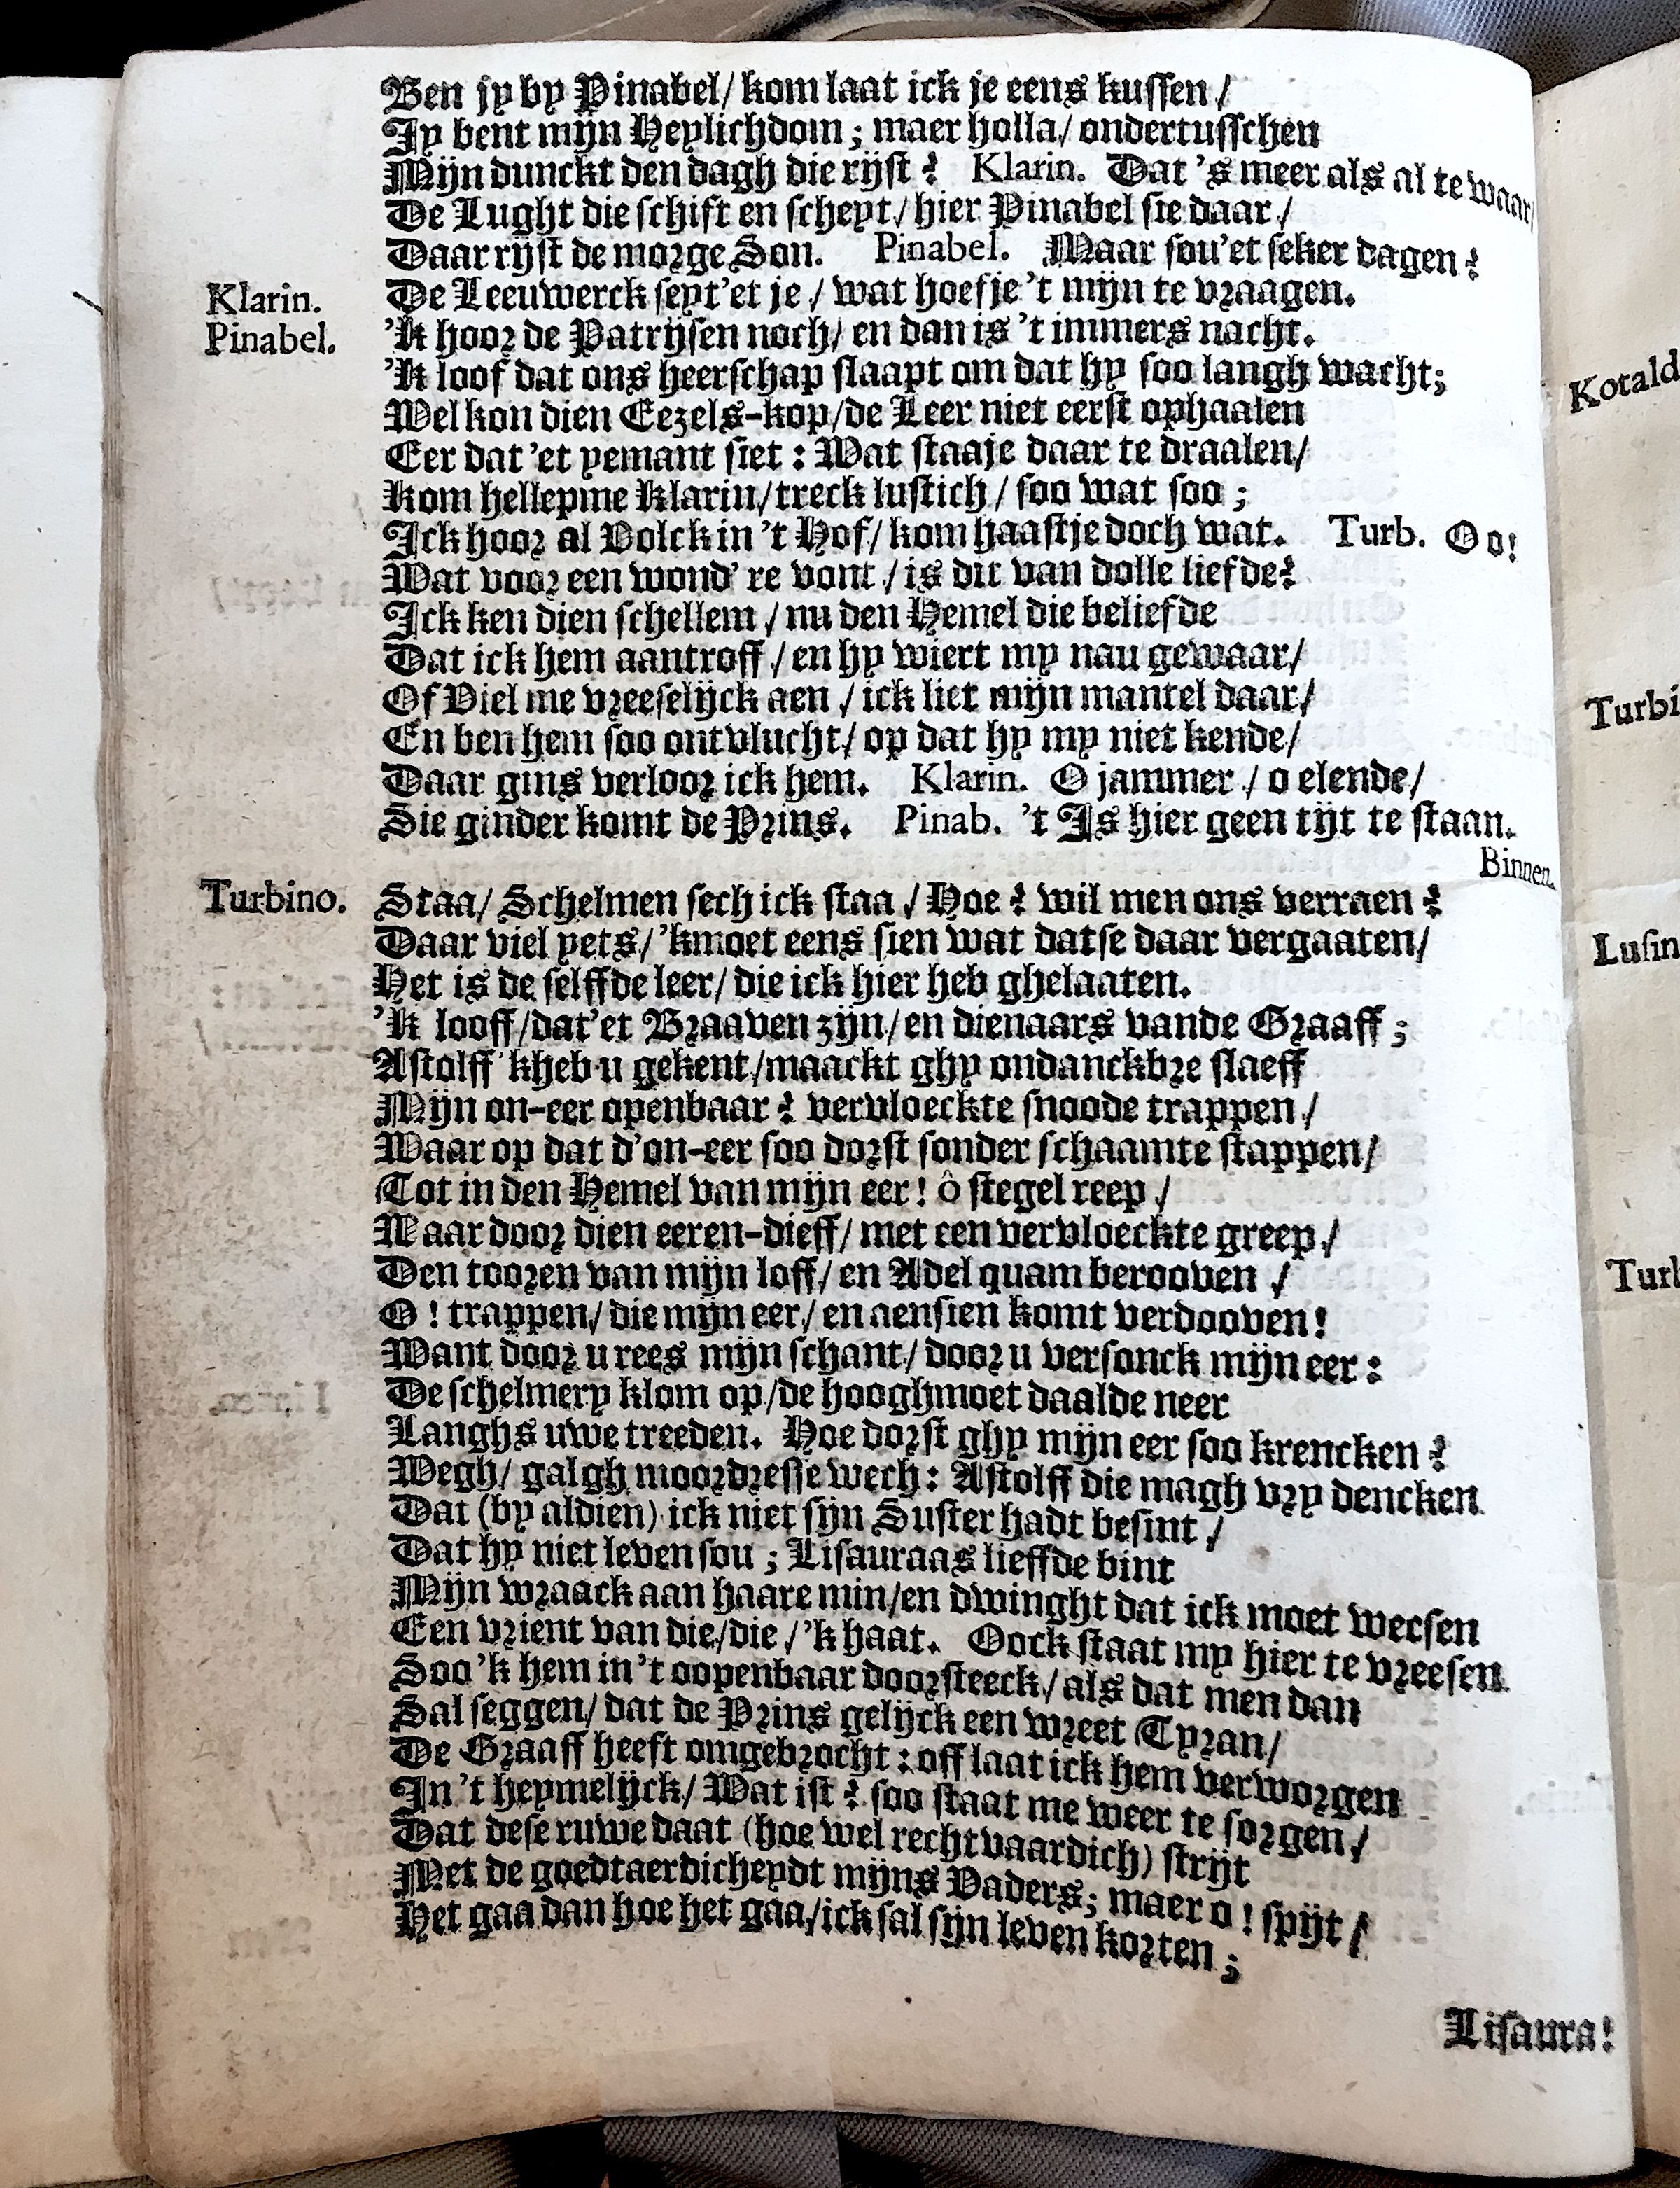 Ben jy by Pinabel/ kom laat ick je eens kussen/
Jy bent mijn Heylichdom; maer holla/ ondertusschen
Mijn dunckt den dagh die rijst? Klarin. Dat 's meer als al te waar/
De Lught die schift en scheyt/ hier Pinabel sie daar/
Daar rijst de morge Son. Pinabel. Maar sou'et seker dagen?
Klarin. De Leeuwerck seyt'et je/ wat hoef je 't mijn te vraagen.
Pinabel. 'K hoor de Patrijsen noch/ en dan is 't immers nacht.
'K loof dat ons heerschap slaapt om dat hy soo langh wacht;
Wel kon dien Eezels-kop/ de Leer niet eerst ophaalen
Eer dat 'et yemant siet: Wat staaje daar te draalen/
Kom hellepme Klarin/ treck lustich/ soo wat soo;
Ick hoor al Volck in 't Hof/ kom haastje doch wat. Turb. Oo!
Wat voor een wond're vont/ is dit van dolle liefde?
Ick ken dien schellem/ nu den Hemel die beliefde
Dat ick hem aantroff/ en hy wiert my nau gewaar/
Of Viel me vreeselijck aen/ ick liet mijn mantel daar/
En ben hem soo ontvlucht/ op dat hy my niet kende/
Daar gins verloor ick hem. Klarin. O jammer/ o elende/
Sie ginder komt de Prins. Pinab. 't Is hier geen tijt te staan.
Binnen.
Turbino. Staa/ Schelmen sech ick staa/ Hoe? wil men ons verraen?
Daar viel yets/ 'kmoet eens sien wat datse daar vergaaten/
Het is de selffde leer/ die ick hier heb ghelaaten.
'K looff/ dat'et Braaven zijn/ en dienaars vande Graaff;
Astolff 'kheb u gekent/ maackt ghy ondanckbre slaeff
Mijn on-eer openbaar? vervloeckte snoode trappen/
Waar op dat d'on-eer soo dorst sonder schaamte stappen/
Tot in den Hemel van mijn eer! ô stegel reep/
Waar door dien eeren-dieff/ met een vervloeckte greep/
Den tooren van mijn loff/ en Adel quam berooven/
O! trappen/ die mijn eer/ en aensien komt verdooven!
Want door u rees mijn schant/ door u versonck mijn eer:
De schelmery klom op/ de hooghmoet daalde neer
Langhs uwe treeden. Hoe dorst ghy mijn eer soo krencken?
Wegh/ galgh moordresse wech: Astolff die magh vry dencken
Dat (by aldien) ick niet sijn Suster hadt besint/
Dat hy niet leven sou; Lisauraas lieffde bint
Mijn wraack aan haare min/ en dwinght dat ick moet weesen
Een vrient van die/ die/ 'k haat. Oock staat my hier te vreesen
Soo 'k hem in 't oopenbaar doorsteeck/ als dat men dan
Sal seggen/ dat de Prins gelijck een wreet Tyran/
De Graaff heeft omgebrocht: off laat ick hem verworgen
In 't heymelijck/ Wat ist? soo staat me weer te sorgen/
Dat dese ruwe daat (hoe wel rechtvaardich) strijt
Met de goedtaerdicheydt mijns Vaders; maer o! spijt/
Het gaa dan hoe het gaa/ ick sal sijn leven korten;
Lisaura!
Kotald
Turbi
Lusin
Turb